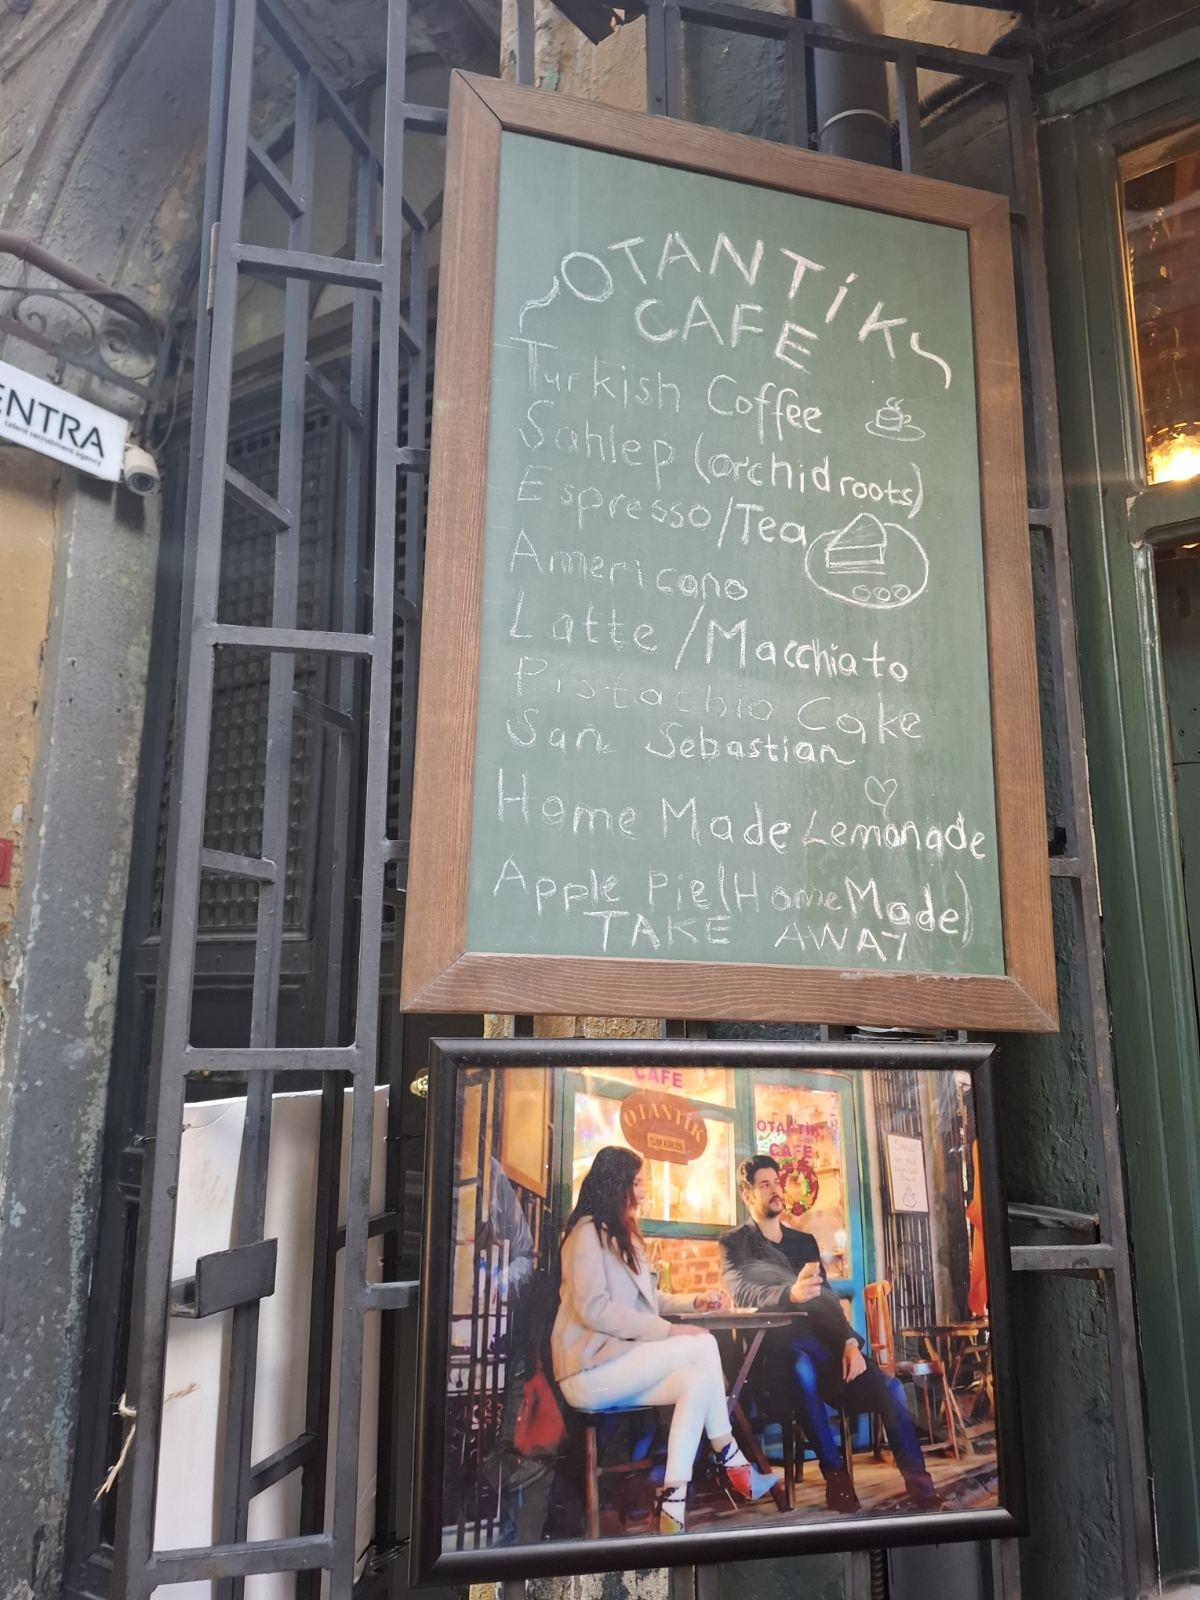 OTANTİK
CAFE
Turkish Coffee
Sahlep (orchid roots)
Espresso/Tea
Americano
Latte/Macchiato
Pistachio Cake
San Sebastian
Home Made Lemonade
Apple Pie (Home Made)
TAKE AWAY
ENTRA
talent recruitment agency
CAFE
OTANTİK
OTANTİK
CAFE